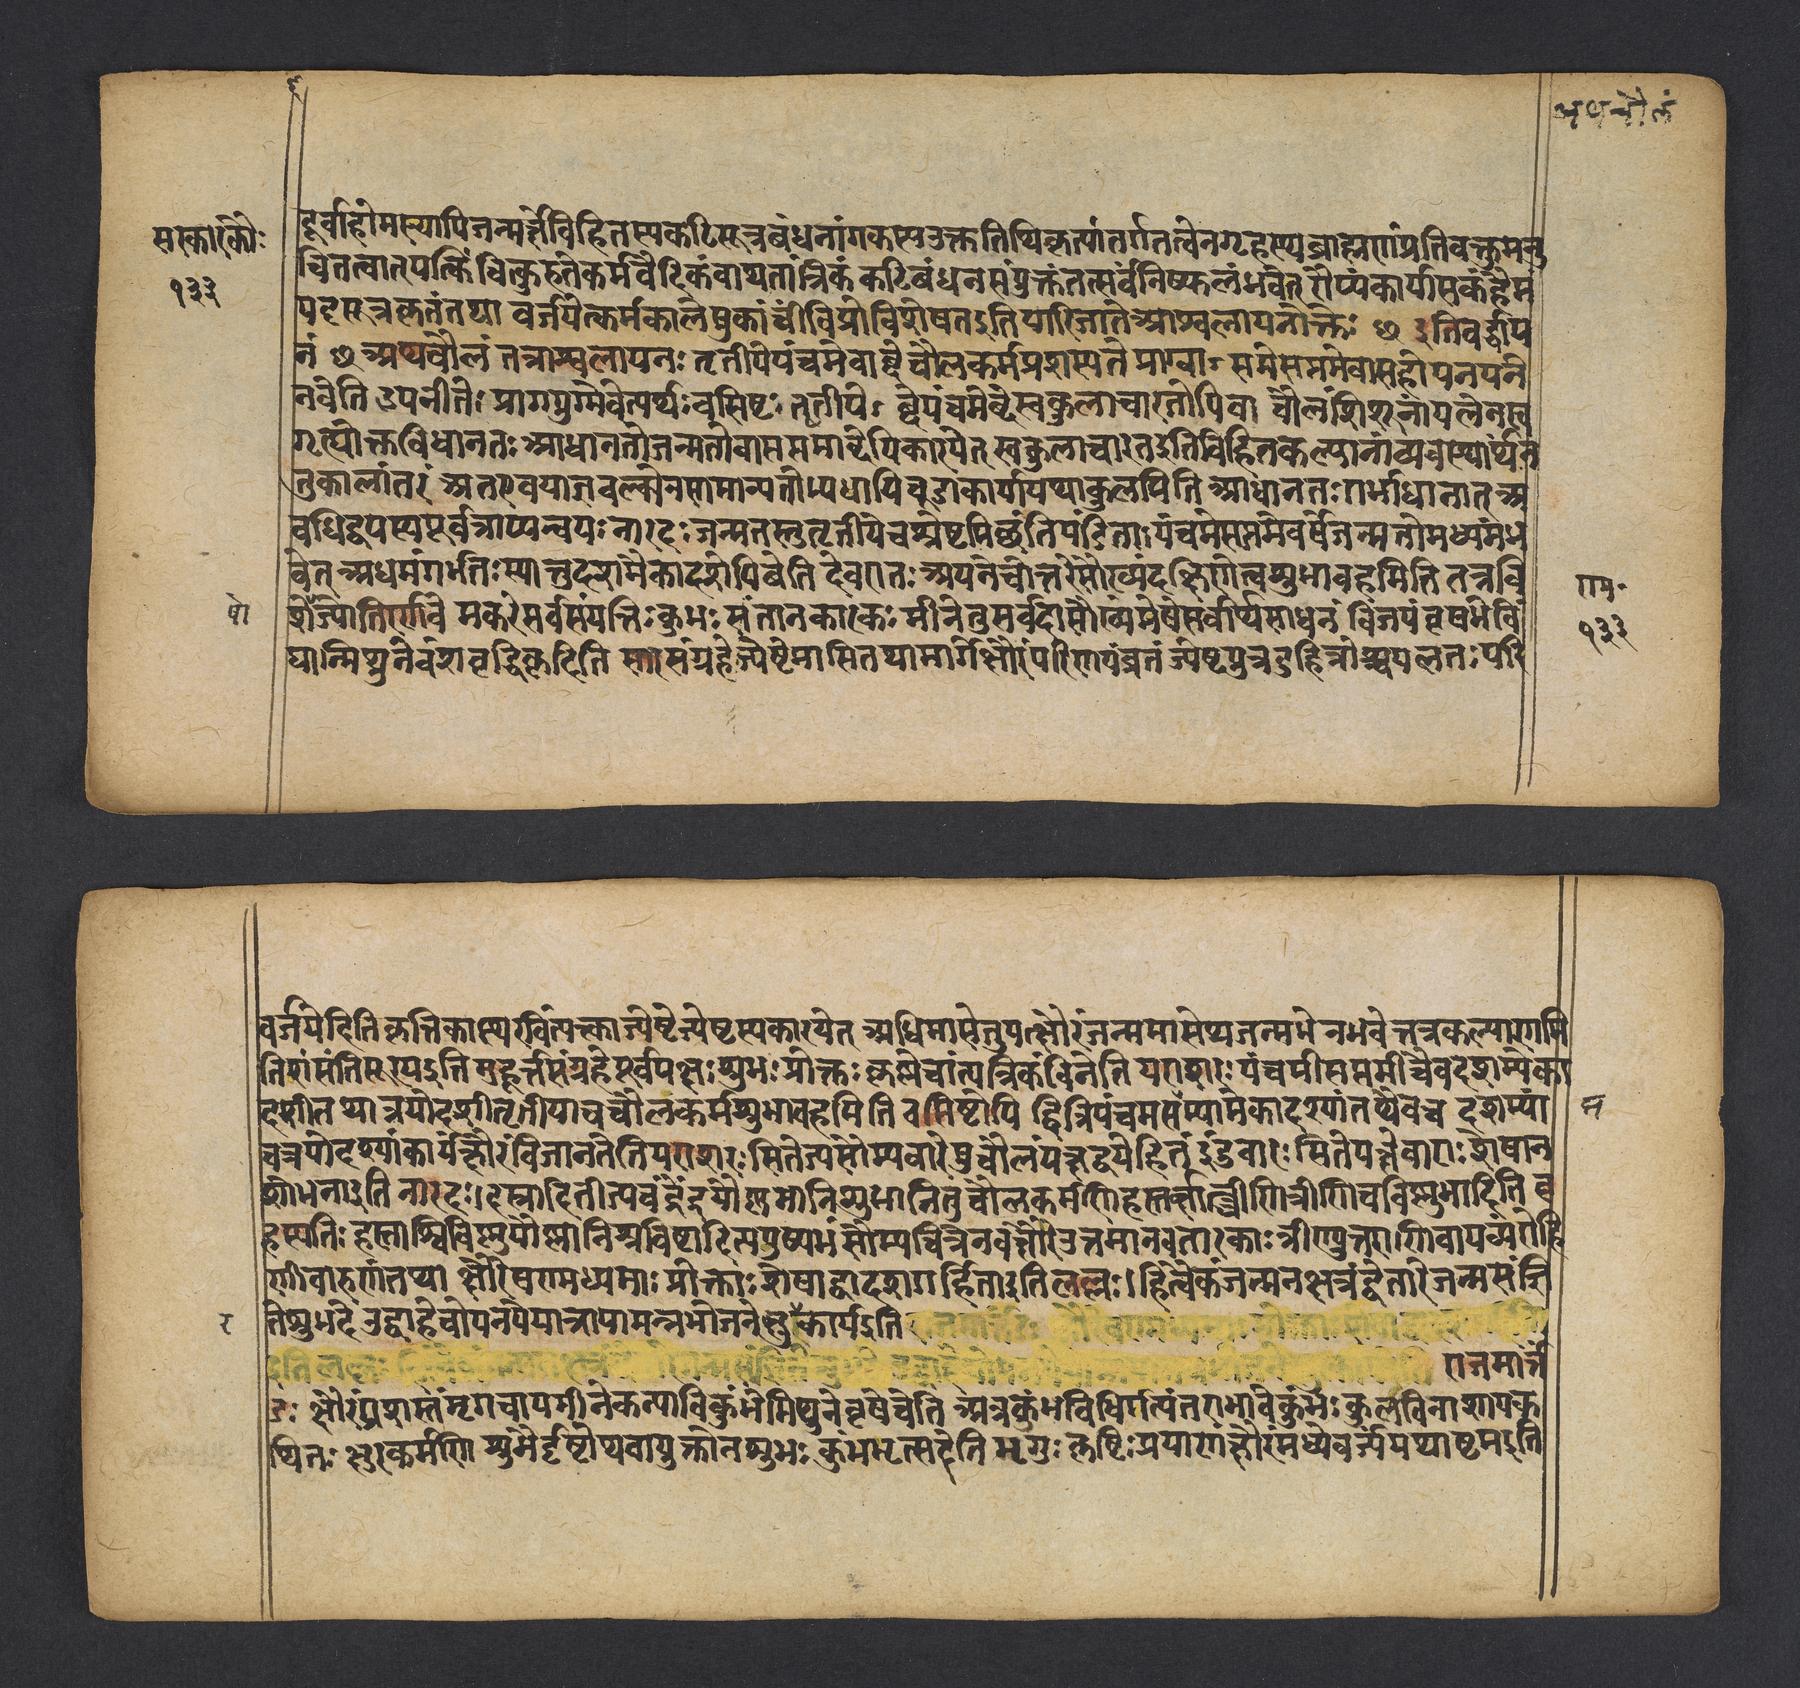 अथचौलं
संस्कारकौः
१३३
दूर्वाहोमस्यापिजन्मर्क्षेविहितस्यकटिसूत्रबंधनांगकस्यउक्ततिथिकृत्यांतर्गतत्वेनगृहस्थब्राह्मणांप्रतिवक्तुमनु
चितत्वात् यत्किंचित्कुरुतेकर्मवैदिकंवाथतांत्रिकं कटिबंधनसंयुक्तंतत्सर्वंनिष्फलंभवेत् रौप्यंकार्पासकंहैमं
पट्टसूत्रकृतंतथा वर्जयेत्कर्मकालेषुकांचींविप्रोविशेषतइतिपारिजातेआश्वलायनोक्तेः ७ इतिवर्द्धाप
नं ७ अथचौलं तत्राश्वलायनः तृतीयेपंचमेवाब्देचौलकर्मप्रशस्यते प्राग्वाऽसमेसममेवासहोपनयने
नवेति उपनीतेः प्रागयुग्मेवेत्यर्थः वसिष्टः तृतीयेऽब्देपंचमेब्देस्वकुलाचारतोपिवा चौलंशिशूनांयत्नेनस्व
गृह्योक्तविधानतः आधानतोजन्मतोवाससमाब्देपिकारयेत् स्वकुलाचारतइतिविहितकल्पानांव्यवस्थार्थंन
तुकालांतरं अतएवयाज्ञवल्क्येनसामान्यतोप्यधायिचूडाकार्यायथाकुलमिति आधानतः गर्भाधानात् अ
वधिद्वयस्यपूर्वत्राप्यन्वयः नारदः जन्मतस्तुतृतीयेचश्रेष्टमिच्छंतिपंडिताः पंचमेसप्तमेवर्षेजन्मतोमध्यमंभ
वेत् अधमंगर्भतःस्यात्तुदशमैकादशेपिवेति देवरातः अयनेचोत्तरेसौख्यंदक्षिणेत्वशुभावहमिति तत्रवि
शेषोज्योतिरर्णवे मकरेसर्वसंपत्तिः कुंभः संतानकारकः मीनेतुसर्वदासौख्यंमेषेसर्वार्थसाधनं विजयंवृषभेविं
द्यान्मिथुनेवंशवृद्धिकृदिति सारसंग्रहेज्येष्टेमासितथामार्गेक्षौरंपरिणयंव्रतं ज्येष्टपुत्रदुहित्रोश्चयत्नतःपरि
षो
राम॰
१३३
वर्जयेदितिकृत्तिकास्थंरविंत्यक्त्वाज्येष्टेज्येष्टस्यकारयेत् अधिमासेतुयत्क्षौरंजन्ममासेथजन्मभे नभवेत्तत्रकल्याणमि
तिशंसंतिसूरयइति मुहूर्त्तसंग्रहेपूर्वपक्षःशुभःप्रोक्तः कृष्णेचांत्यत्रिकंविनेति पराशरः पंचमीसप्तमीचैवदशम्येका
दशीतथात्रयोदशीतृतीयाचचौलकर्मशुभावहमिति वसिष्टोपि द्वित्रिपंचमसप्तम्यामेकादश्यांतथैवच दशम्यां
चत्रयोदश्यांकार्यंक्षौरंविजानतेतिपराशरः सितेज्यसौम्यवारेषुचौलंपक्षद्वयेहितं इंदुवारः सितेपक्षेवाराः शेषान
शोभनाइति नारदः।दस्रादितीज्यचंद्रेंदुपौष्णभानिशुभानितुचौलकर्मणिहस्तर्क्षात्त्रीणित्रीणिचविष्णुभादिति बृ
हस्पतिः हस्ताश्विविष्णुपौष्णानिश्रविष्टादित्यपुष्यभं सौम्यचित्रेनवक्षौरेउत्तमानवतारकाः त्रीण्युत्तराणिवायव्यंरोहि
णीवारुणंतथा क्षौरेषण्मध्यमाः प्रोक्ताः शेषाद्वादशगर्हिताइतिलल्लः।हित्वैकंजन्मनक्षत्रंद्वेतारेजन्मसंज्ञि
तेशुभदे उद्वाहेचोपनयेयात्रायामन्नभोजनेक्षुरेकार्यइति
इतिलल्लः राजमार्त्तं
डः क्षौरंप्रशस्तंमृगचापमीनेकन्याविकुंभेमिथुनेवृषेचेति अत्रकुंभविधिर्गत्यंतराभावेकुंभः कुलविनाशायक
थितः क्षुरकर्मणि शुभैर्दृष्टोथवायुक्तोनशुभः कुंभभृत्सदेति भृगुः कृषिःप्रयाणंक्षौरंमध्येवर्ज्यंयथाष्टमइति
म
र